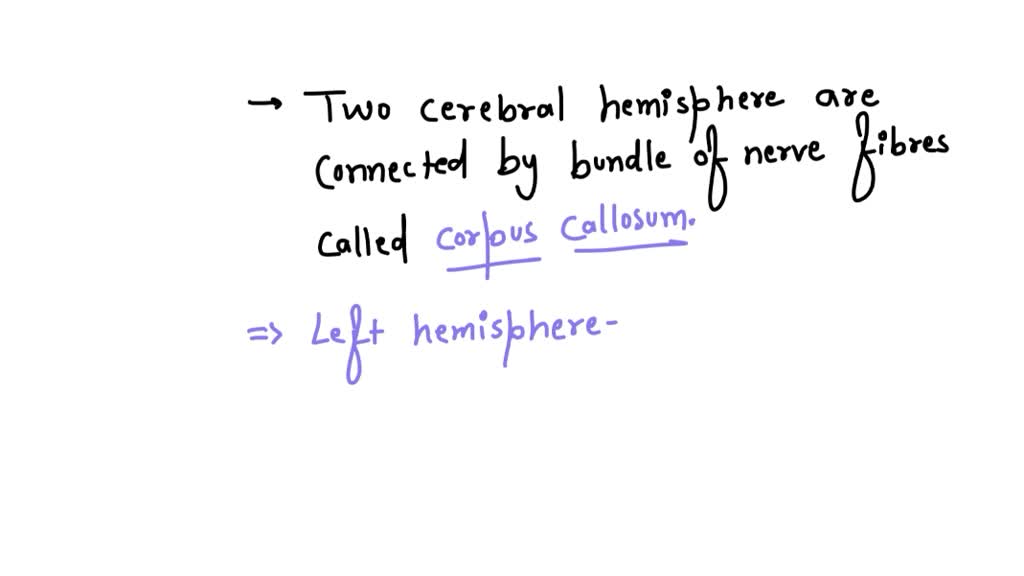 → Two cerebral hemisphere are
connected by bundle of nerve fibres
called corpus callosum.
⇒ Left hemisphere-